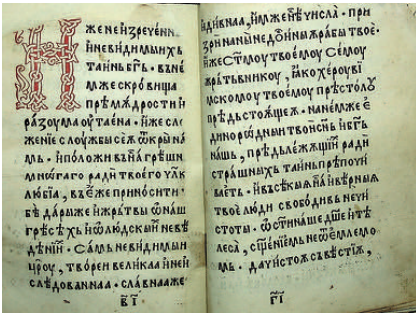 Иже неизреченни
и невидимыихь
таинь б҃гь. в не
мже скровища
прѣмѫдрости и
разоума оутаена. иже слоу
женїе слоужбы сеѫ ѡкры на
мь. и положи ны грѣшн
многаго ради твоего чл҃к
любїа, въ еже приносити т
бѣ дары же и жрътвы ѡ наш
грѣсѣхь и ѡ людскыи невѣ
дѣнїи. самь невидимыи
цр҃ю, творѧи великаа и неи
слѣдованнаа. славнаа же
в҃ї
и дивнаа, имже нѣ числа. при
зри на ны недостоины рабы твоѫ.
иже ст҃моу твоемоу семоу
жрьтъвникоу, ꙗко хероуви
мскомоу твоемоу прѣстолоу
прѣдьстоѧщеѫ. на немже е
динородныи твои сн҃ь и б҃гь
нашь, прѣдьлежѧщїи ради
страшныхь таинь прѣпочи
ваеть. и въсѣкыѫ и вѣрныѫ
твоѫ люди свободивь нечи
стоты. ѡс҃ти наше дш҃е и тѣ
леса, ст҃енїемь неѡемлемо
мь. да чистоѫ съвѣстїѫ,
г҃ї